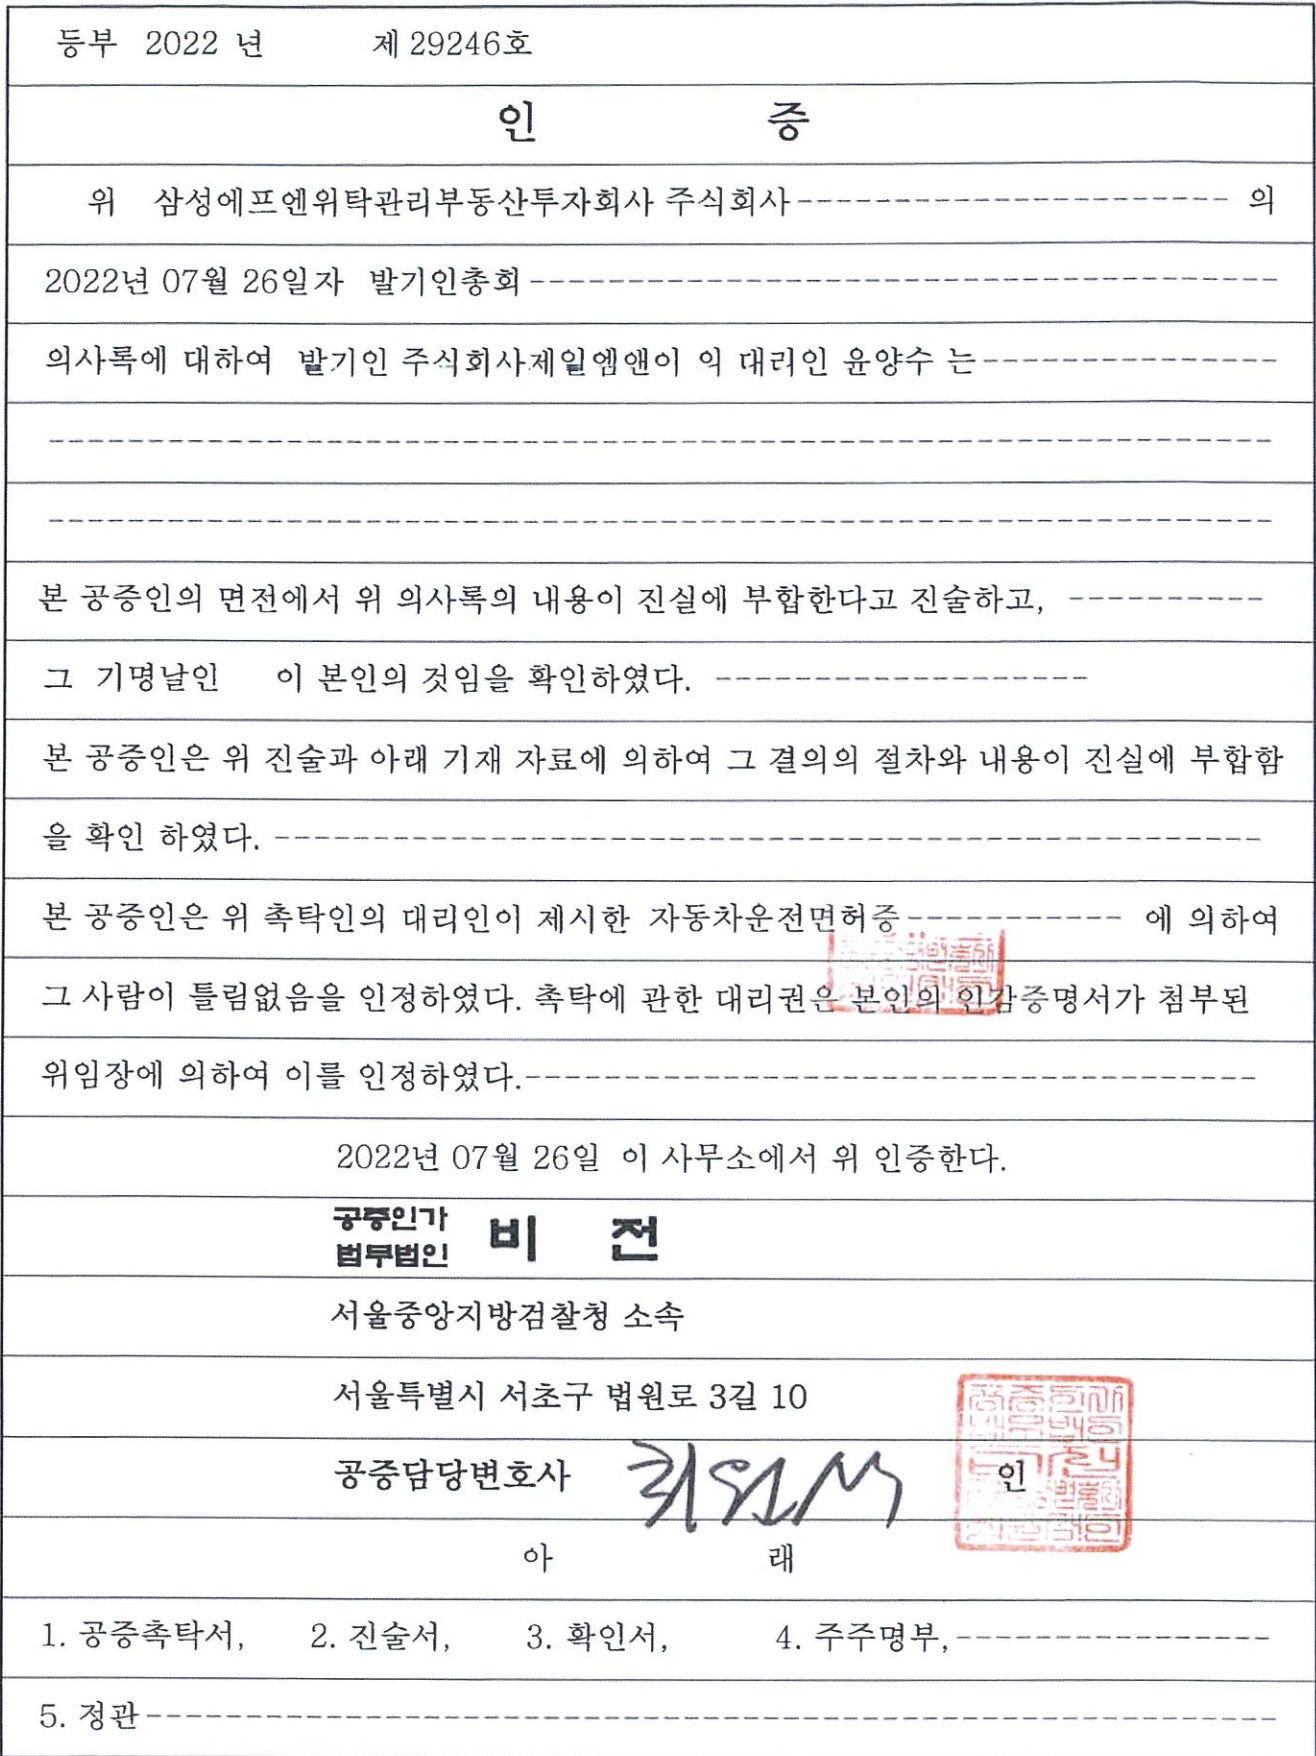 등부 2022 년 제 29246호
인 증
위 삼성에프엔위탁관리부동산투자회사 주식회사---------------------- 의
2022년 07월 26일자 발기인총회--------------------------------------
의사록에 대하여 발기인 주식회사제일엠앤이 의 대리인 윤양수 는---------------
--------------------------------------------------------------
--------------------------------------------------------------
본 공증인의 면전에서 위 의사록의 내용이 진실에 부합한다고 진술하고, ----------
그 기명날인 이 본인의 것임을 확인하였다. -------------------
본 공증인은 위 진술과 아래 기재 자료에 의하여 그 결의의 절차와 내용이 진실에 부합함
을 확인 하였다. --------------------------------------------------
본 공증인은 위 촉탁인의 대리인이 제시한 자동차운전면허증----------- 에 의하여
그 사람이 틀림없음을 인정하였다. 촉탁에 관한 대리권은 본인의 인감증명서가 첨부된
위임장에 의하여 이를 인정하였다.-------------------------------------
2022년 07월 26일 이 사무소에서 위 인증한다.
공증인가
법무법인 비 전
서울중앙지방검찰청 소속
서울특별시 서초구 법원로 3길 10
공증담당변호사 인
아 래
1. 공증촉탁서, 2. 진술서, 3. 확인서, 4. 주주명부,----------------
5. 정관---------------------------------------------------------